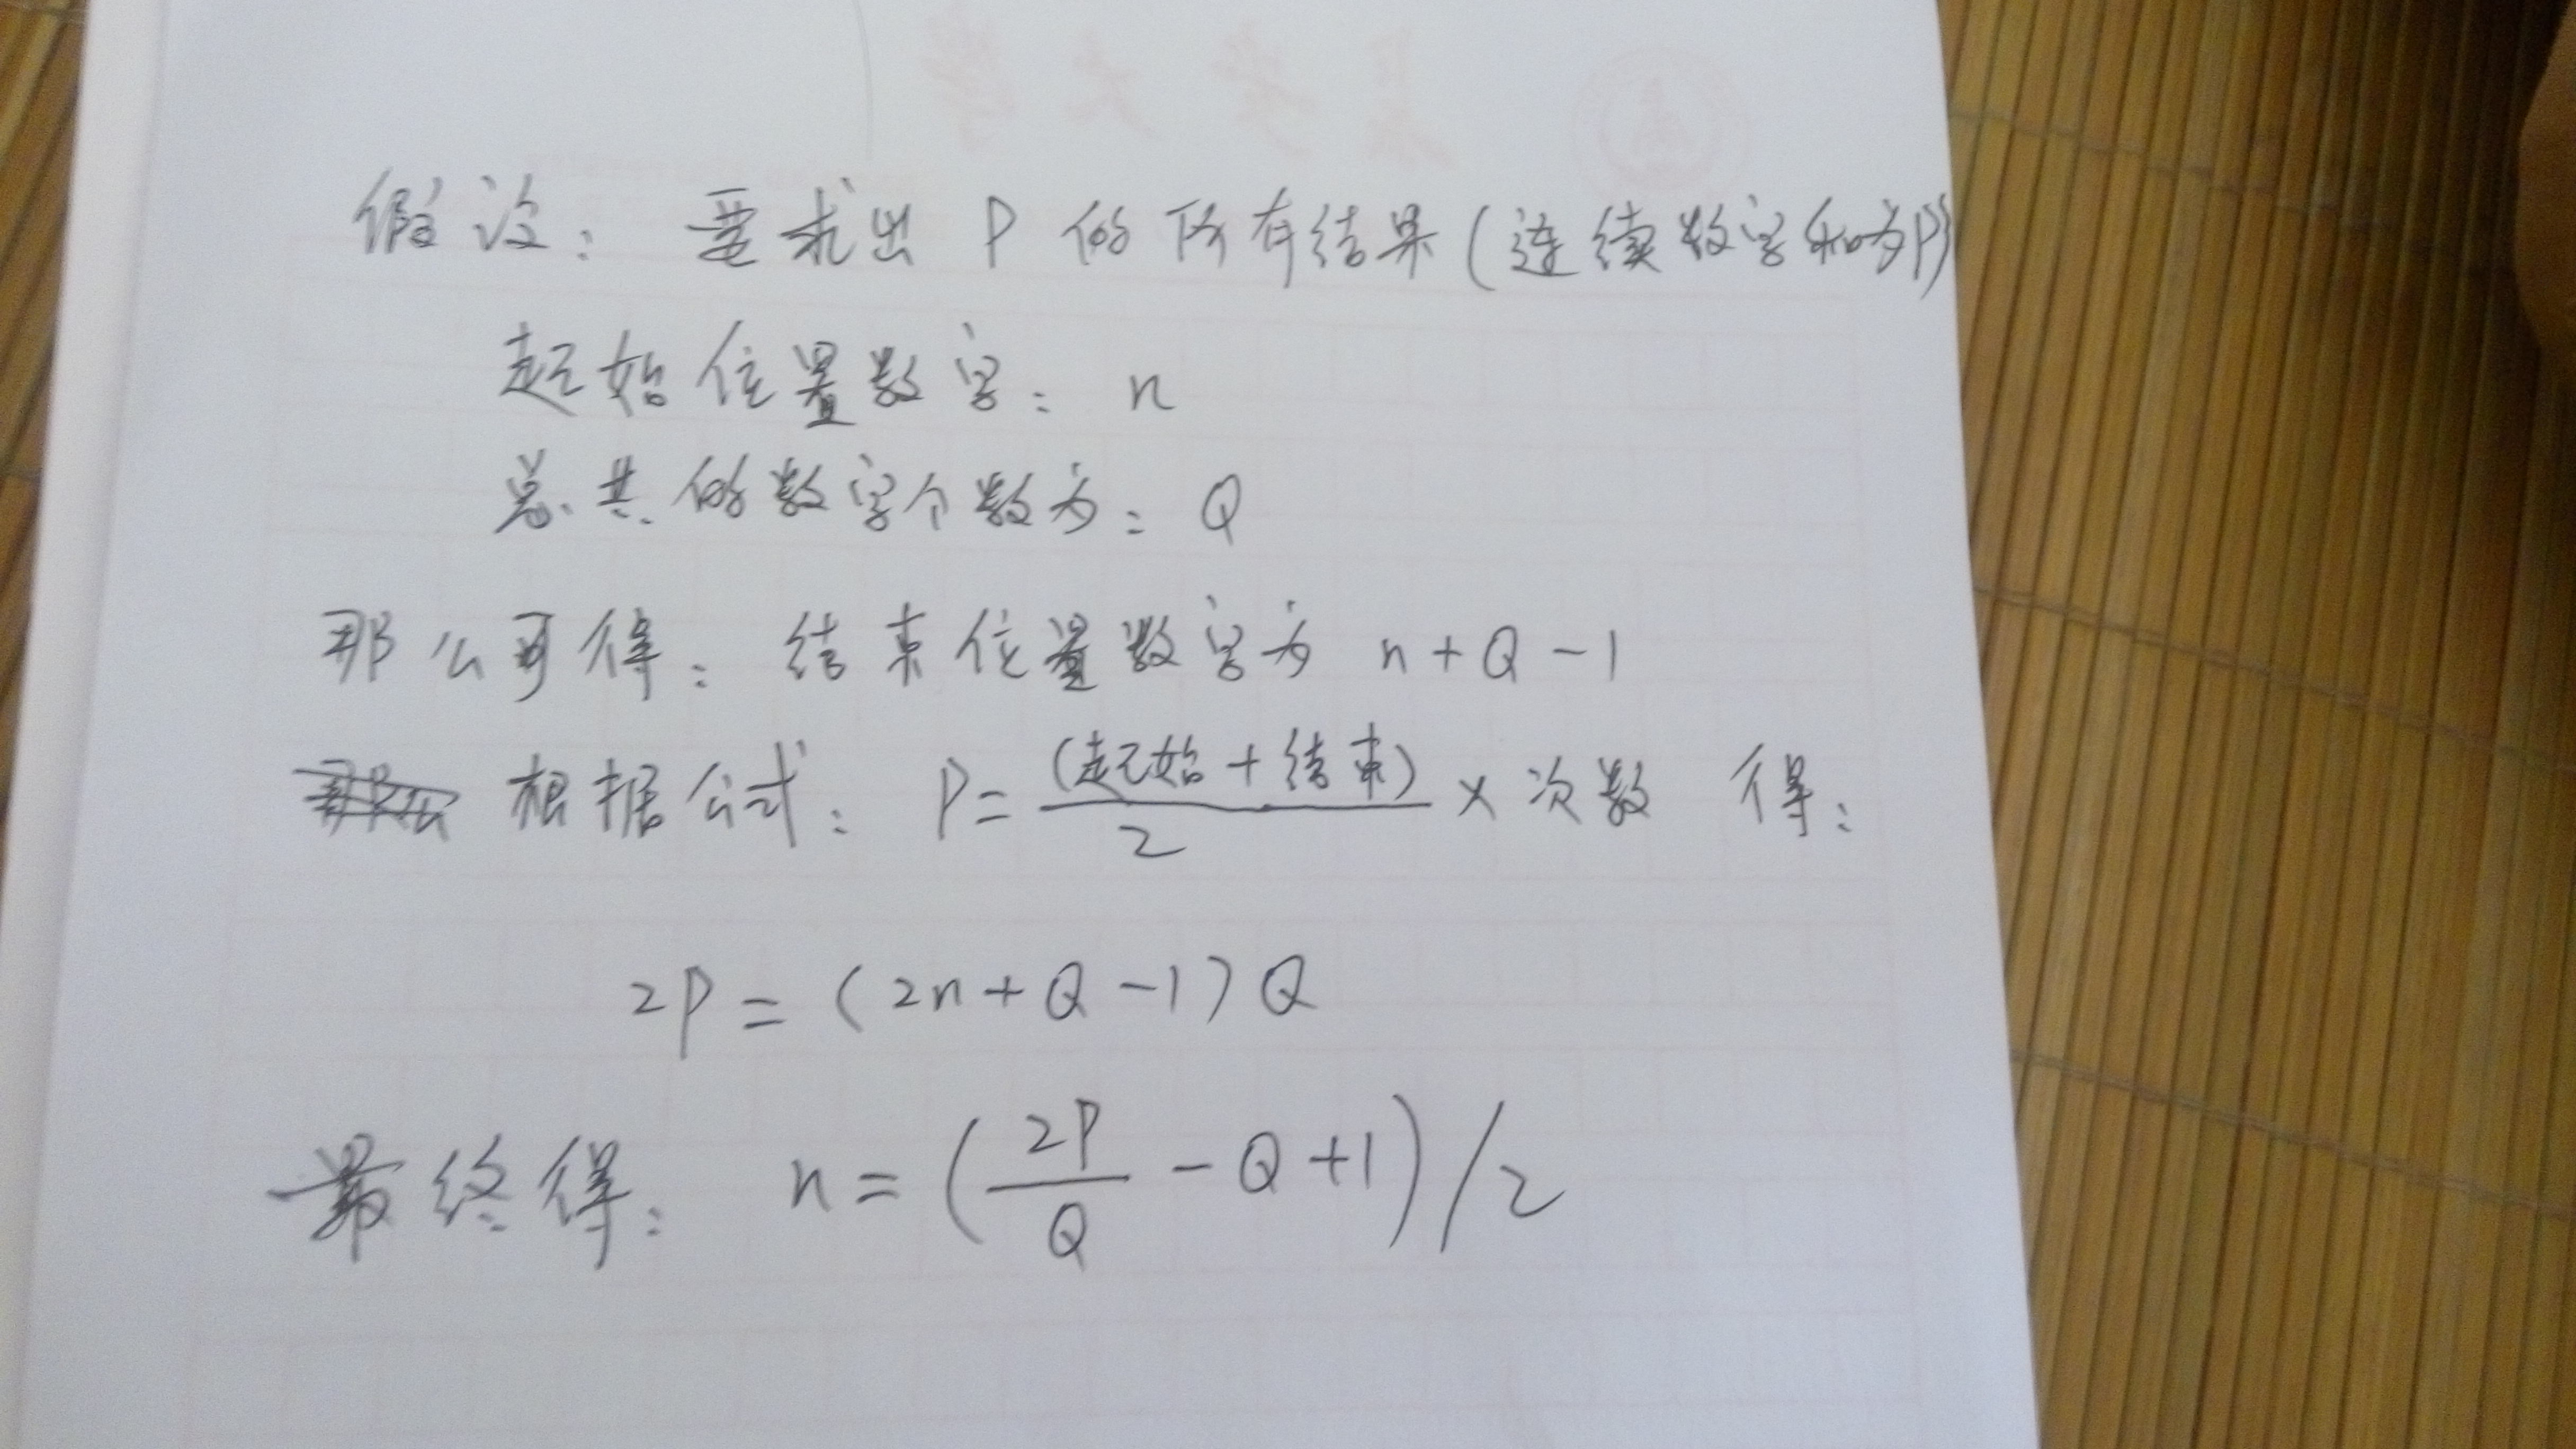 假设：要求出 P 的所有结果（连续数字和为P）
起始位置数字：n
总共的数字个数为：Q
那么可得：结束位置数字为 n+Q-1
根据公式：P=(起始+结束)/2 × 次数 得：
2P=(2n+Q-1)Q
最终得：n=(2P/Q-Q+1)/2